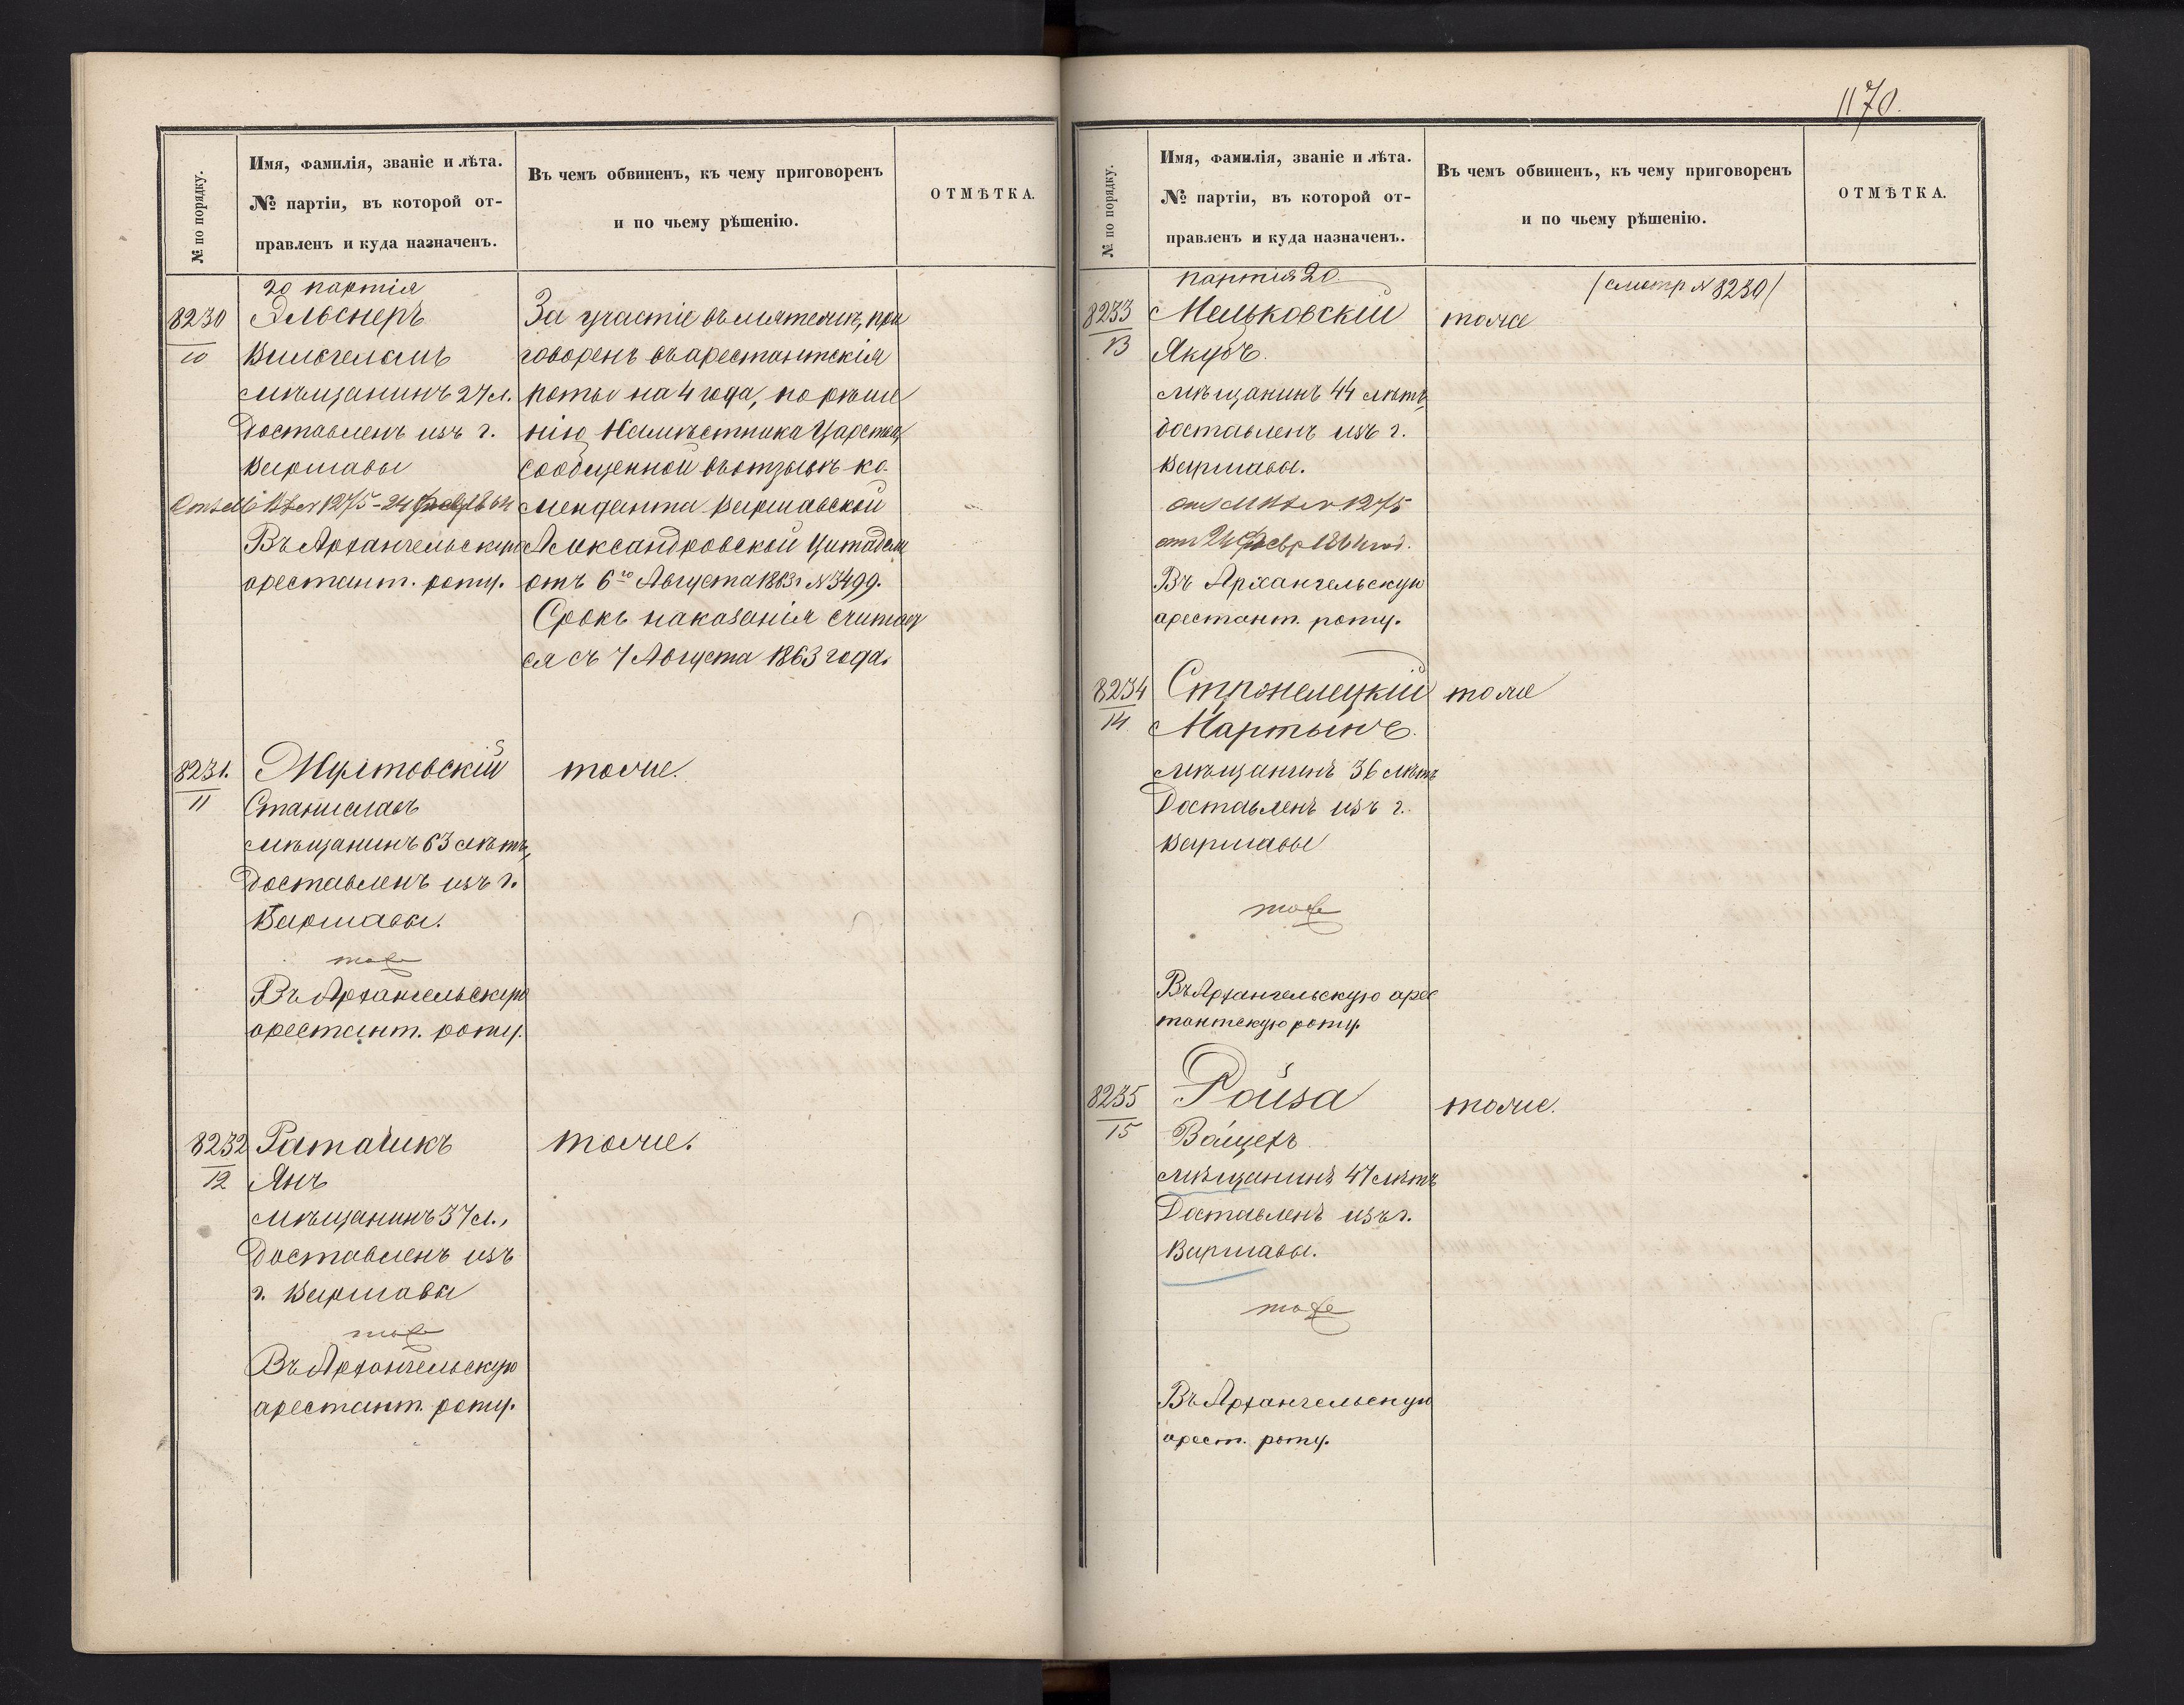 № по порядку.
Имя, фамилія, званіе и лѣта.
№ партіи, въ которой от-
правленъ и куда назначенъ.
Въ чемъ обвиненъ, къ чему приговоренъ
и по чьему рѣшенію.
ОТМѢТКА.
20 партія
8230
10
Эльснеръ
Вильгельмъ
мѣщанинъ 27 л.
Доставленъ изъ г.
Варшавы
1275 - 24
Въ Архангельскую
арестант. роту.
За участіе въ мятежѣ, при
говоренъ въ арестантскія
роты на 4 года, по рѣше
нію Намѣстника Царства,
сообщенной въ отзывѣ ко-
менданта Варшавской
Александровской Цитадели
отъ 6го Августа 1863 г №3499.
Срокъ наказанія считает
ся съ 7 Августа 1863 года.
8231.
11
Жултовскій
Станиславъ
мѣщанинъ 63 лѣтъ,
Доставленъ изъ г.
Варшавы.
тоже
Въ Архангельскую
арестант. роту.
тоже.
8232
12
Ратайикъ
Янъ
мѣщанинъ 37 л.,
Доставленъ изъ
г. Варшавы
тоже
Въ Архангельскую
арестант. роту.
тоже.
1170.
№ по порядку.
Имя, фамилія, званіе и лѣта.
№ партіи, въ которой от-
правленъ и куда назначенъ.
Въ чемъ обвиненъ, къ чему приговоренъ
и по чьему рѣшенію.
ОТМѢТКА.
партія 20
/смотр № 8230/
8233
13
Мельковскій
Якубъ.
мѣщанинъ 44 лѣтъ,
доставленъ изъ г.
Варшавы.
1275
от 24 Февр 1864 год.
Въ Архангельскую
арестант. роту.
тоже
8234
14
Стржелецкій
Мартынъ.
мѣщанинъ 36 лѣтъ
Доставленъ изъ г.
Варшавы
тоже
Въ Архангельскую арес
тантскую роту.
тоже
8235
15
Ройза
Вацехъ
мѣщанинъ 47 лѣтъ
Доставленъ изъ г.
Варшавы.
тоже
Въ Архангельскую
арест. роту.
тоже.